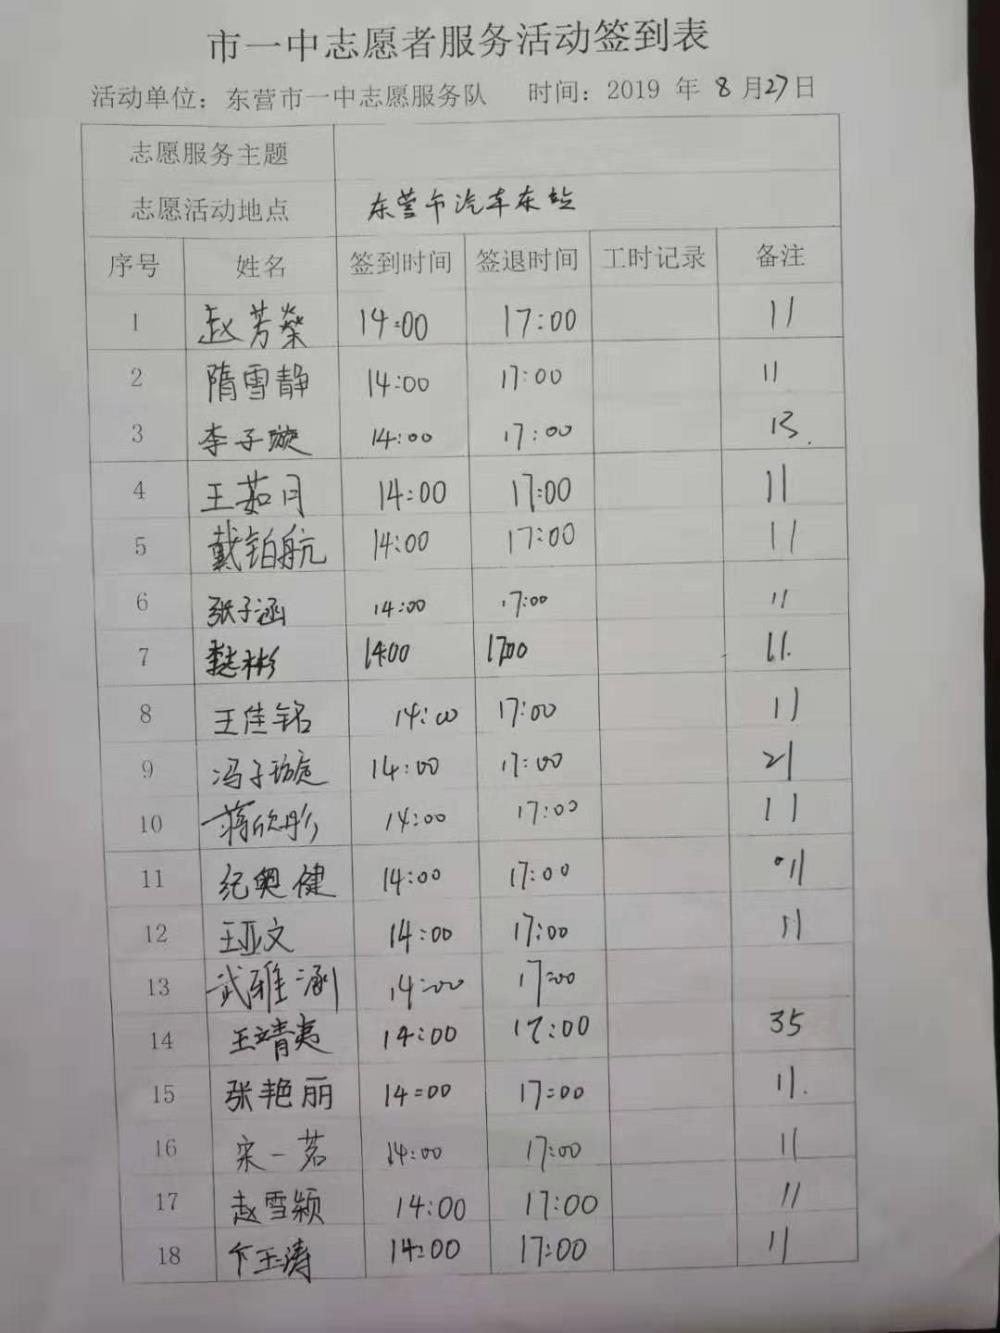 市一中志愿者服务活动签到表
活动单位：东营市一中志愿服务队 时间：2019 年 8 月27日
志愿服务主题
志愿活动地点 东营市汽车东站
序号 姓名 签到时间 签退时间 工时记录 备注
1 赵芳荣 14:00 17:00 11
2 隋雪静 14:00 17:00 11
3 李子璇 14:00 17:00 13.
4 王茹月 14:00 17:00 11
5 戴铂航 14:00 17:00 11
6 张子涵 14:00 17:00 11
7 14:00 17:00 11.
8 王佳铭 14:00 17:00 11
9 冯子璇 14:00 17:00 21
10 蒋欣彤 14:00 17:00 11
11 纪奥健 14:00 17:00 11
12 王亚文 14:00 17:00 11
13 武雅涵 14:00 17:00
14 王靖夷 14:00 17:00 35
15 张艳丽 14:00 17:00 11.
16 宋一茗 14:00 17:00 11
17 赵雪颖 14:00 17:00 11
18 卞玉涛 14:00 17:00 11